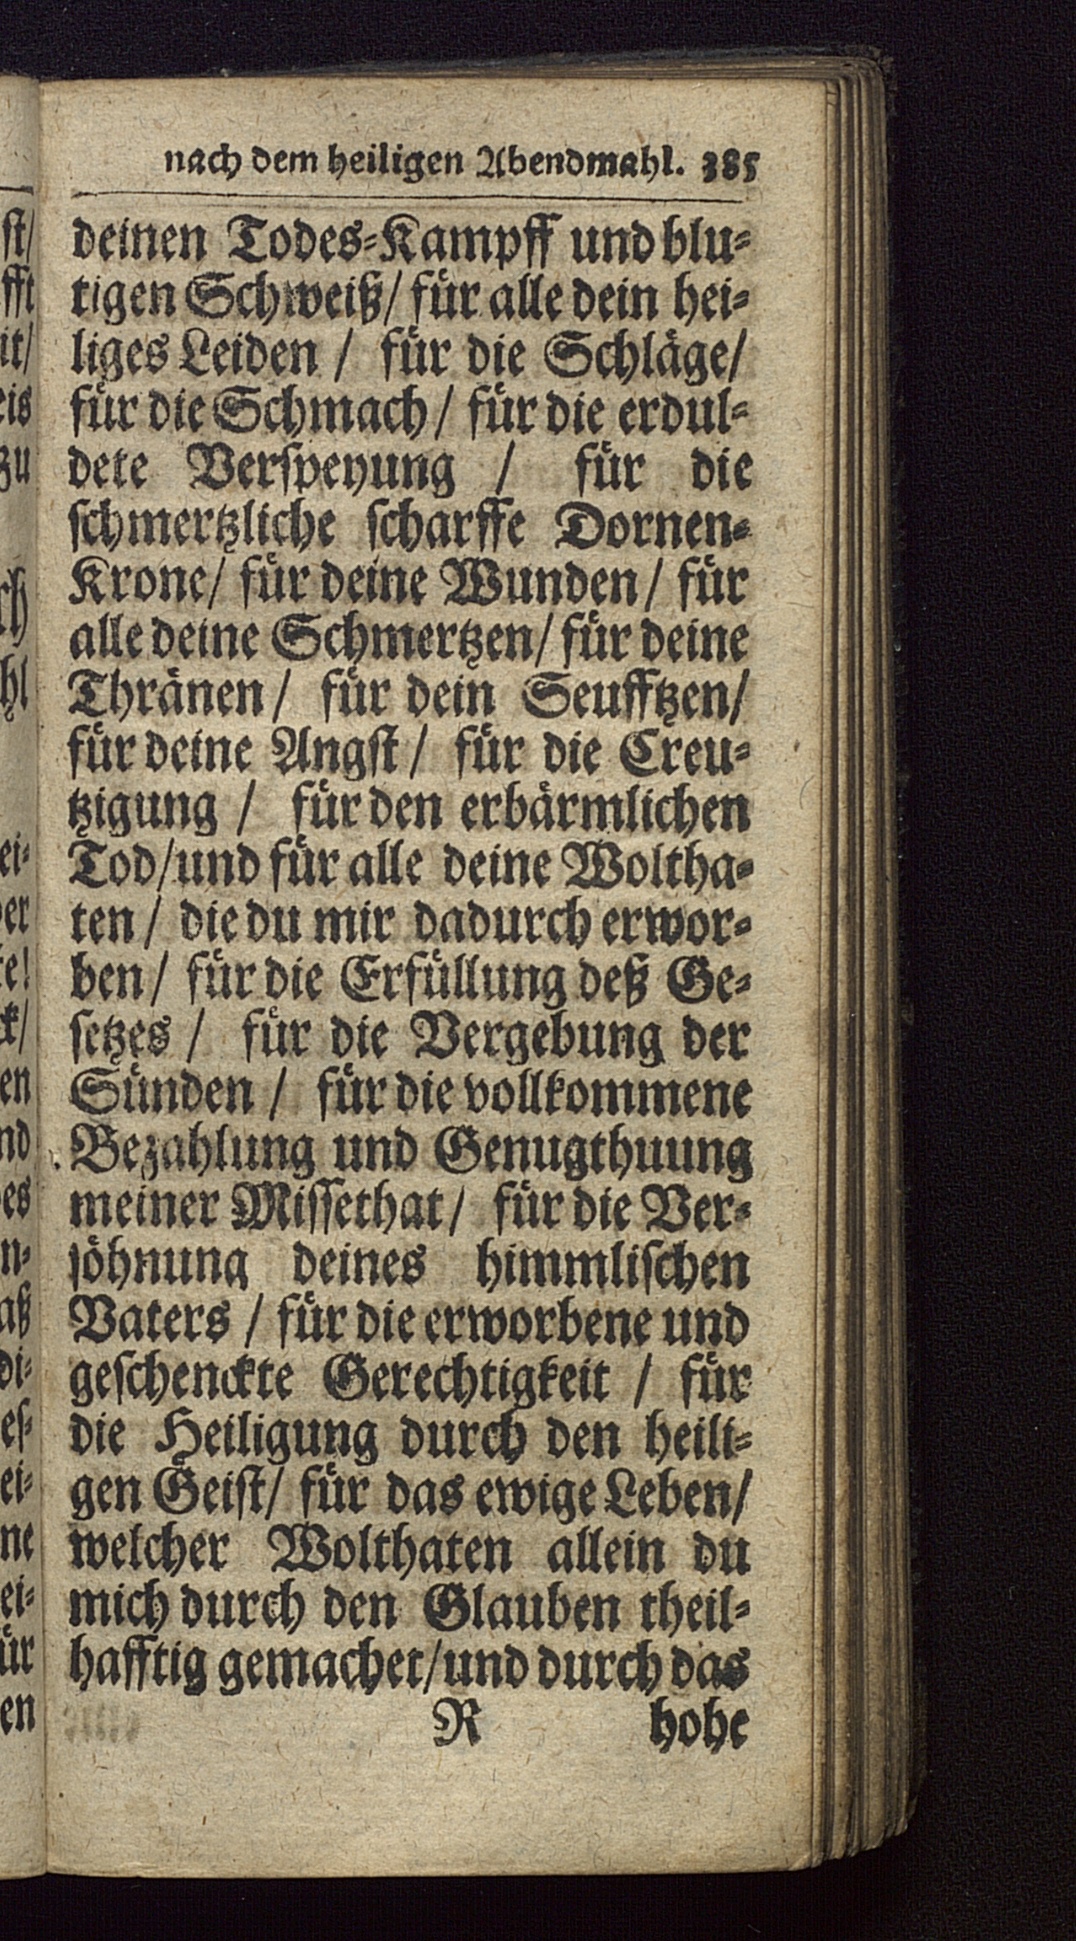 nach dem heiligen Abendmahl. 385
deinen Todes-Kampff und blu-
tigen Schweiß/ für alle dein hei-
liges Leiden / für die Schläge/
für die Schmach/ für die erdul-
dete Verſpeyung / für die
ſchmertzliche ſcharffe Dornen-
Krone/ für deine Wunden/ für
alle deine Schmertzen/ für deine
Thränen/ für dein Seufftzen/
für deine Angſt/ für die Creu-
tzigung / für den erbärmlichen
Tod/und für alle deine Woltha-
ten/ die du mir dadurch erwor-
ben/ für die Erfüllung deß Ge-
ſetzes / für die Vergebung der
Sünden / für die vollkommene
Bezahlung und Genugthuung
meiner Miſſethat/ für die Ver-
ſöhnung deines himmliſchen
Vaters / für die erworbene und
geſchenckte Gerechtigkeit / für
die Heiligung durch den heili-
gen Geiſt/ für das ewige Leben/
welcher Wolthaten allein du
mich durch den Glauben theil-
hafftig gemachet/und durch das
R hohe